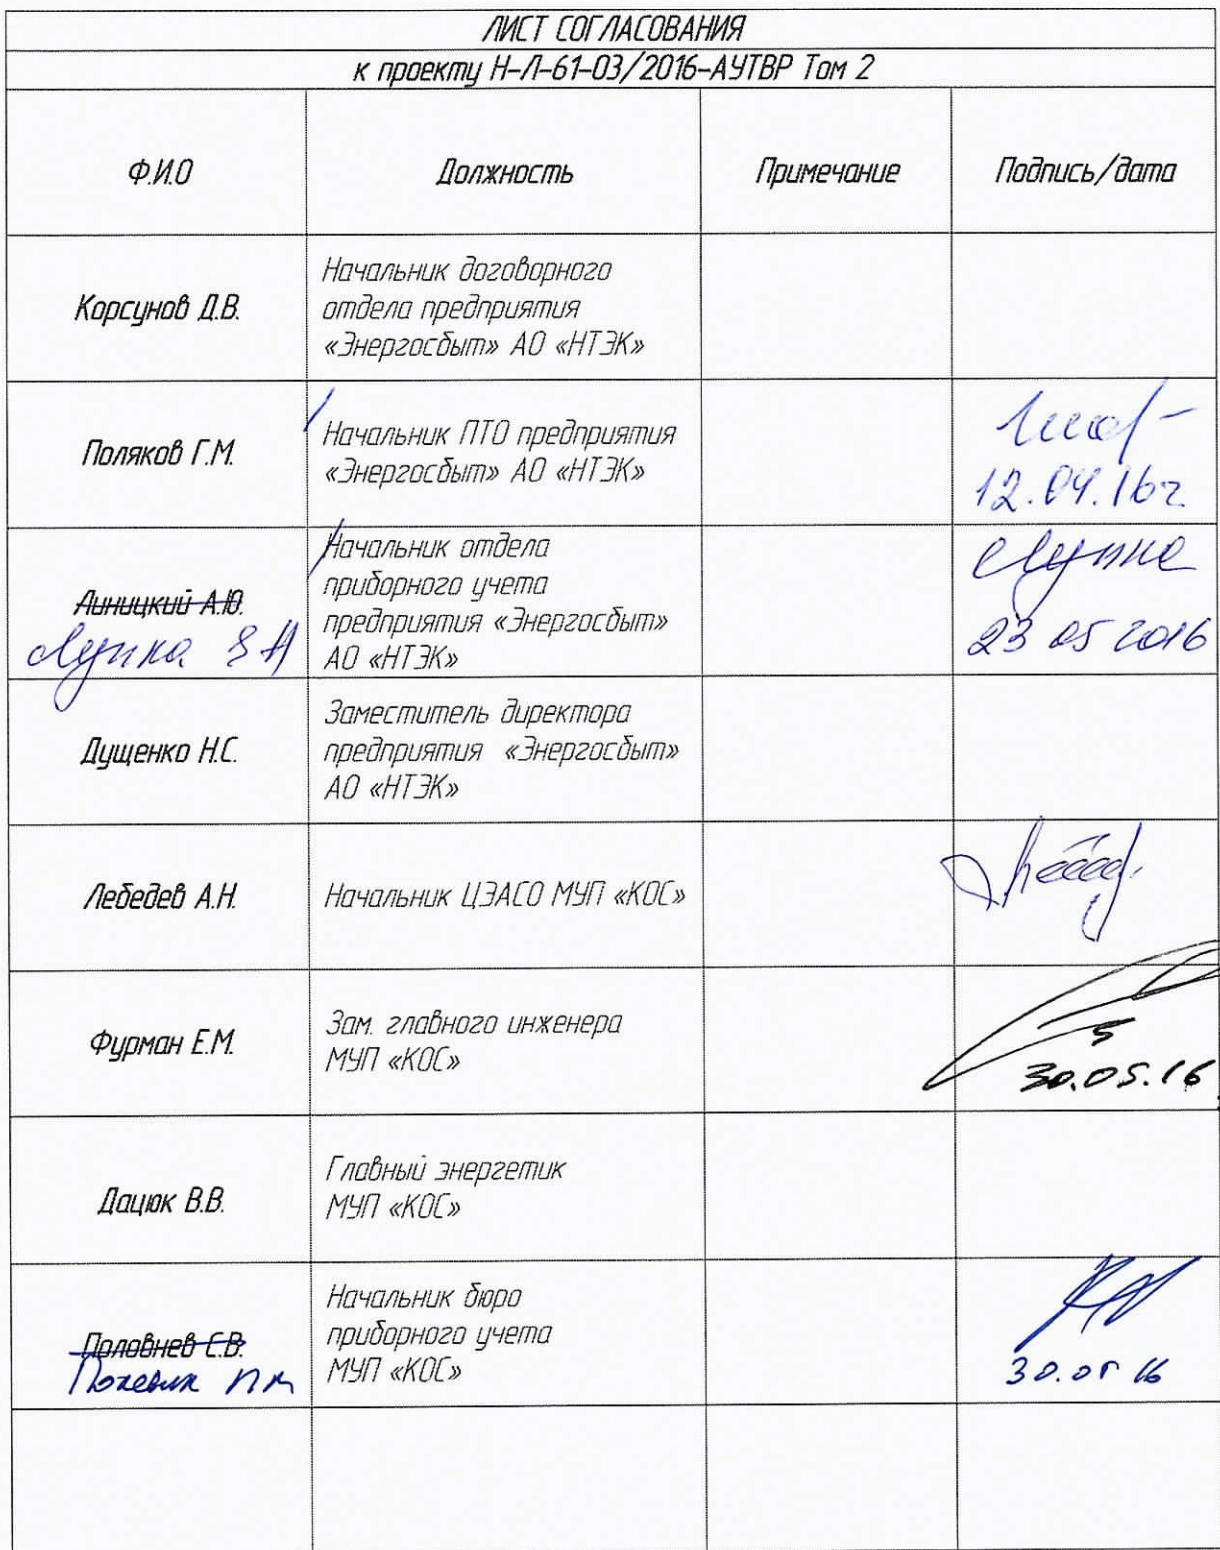 ЛИСТ СОГЛАСОВАНИЯ
к проекту Н-Л-61-03/2016-АУТВР Том 2
Ф.И.О Должность Примечание Подпись/дата
Корсунов Д.В.
Начальник договорного
отдела предприятия
«Энергосбыт» АО «НТЭК»
Поляков Г.М.
Начальник ПТО предприятия
«Энергосбыт» АО «НТЭК»
12.04.16г.
Линицкий А.Ю.
Лупка
Начальник отдела
приборного учета
предприятия «Энергосбыт»
АО «НТЭК»
Лупка
23 05 2016
Дущенко Н.С.
Заместитель директора
предприятия «Энергосбыт»
АО «НТЭК»
Лебедев А.Н.
Начальник ЦЭАСО МУП «КОС»
Фурман Е.М.
Зам. главного инженера
МУП «КОС»
30.05.16
Дацюк В.В.
Главный энергетик
МУП «КОС»
Половнев С.В.
Начальник бюро
приборного учета
МУП «КОС»
30.05 16